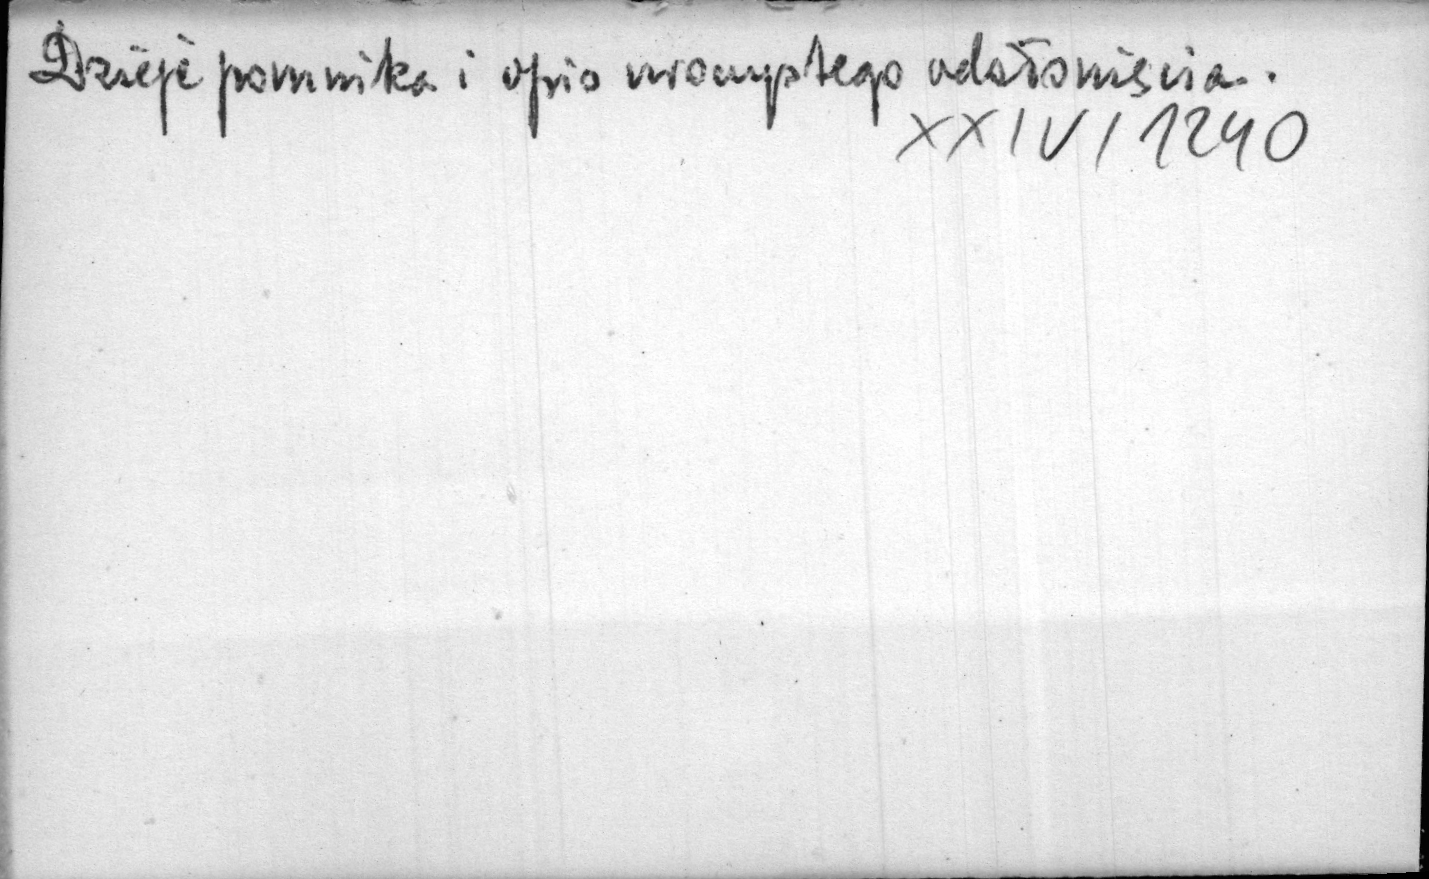 Dzieje pomnika i opis uroczystego odsłonięcia.
XXIV/1240